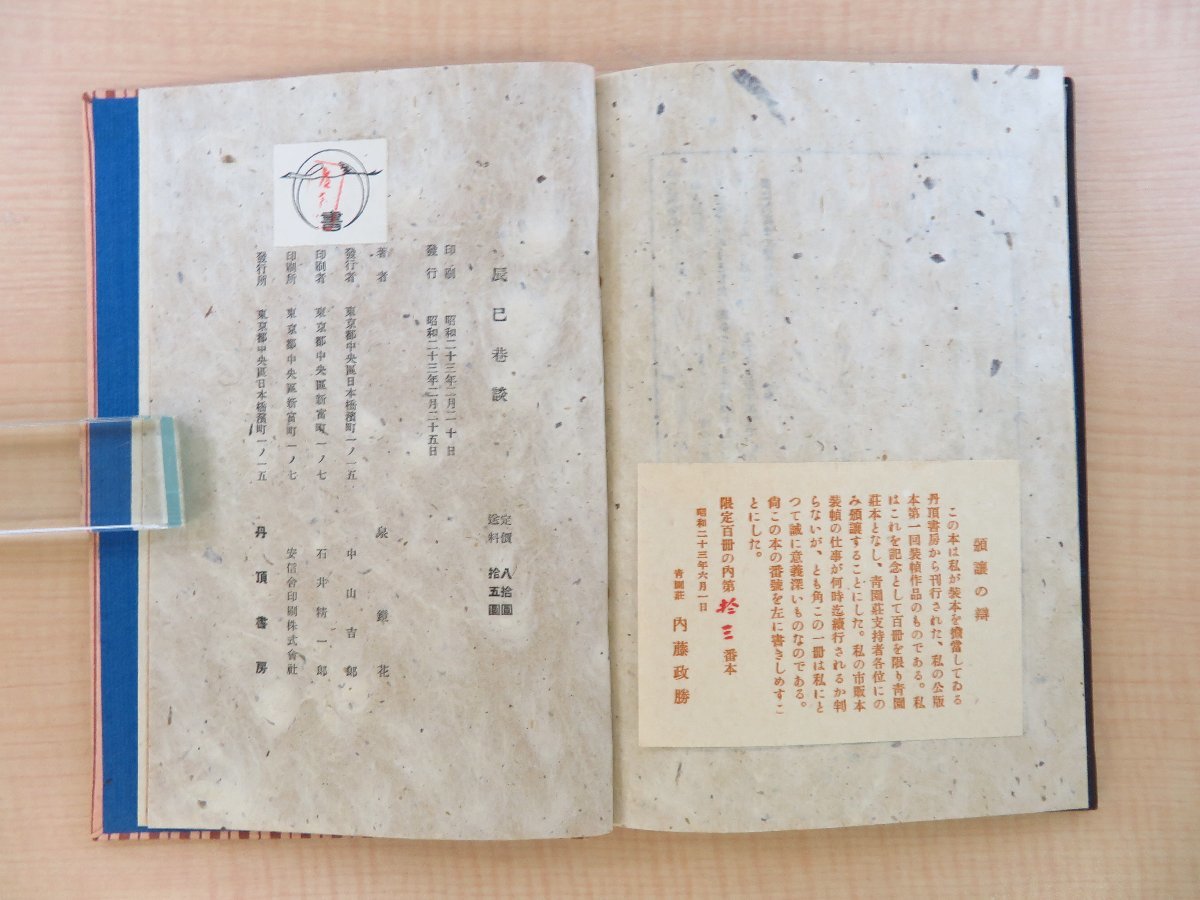 頒讓の辯
この本は私が裝本を擔當してゐる
丹頂書房から刊行された、私の公版
本第一囘裝幀作品のものである。私
はこれを記念として百冊を限り靑園
莊本となし、靑園莊支持者各位にの
み頒讓することにした。私の市販本
裝幀の仕事が何時迄續行されるか判
らないが、とも角この一冊は私にと
つて誠に意義深いものなのである。
尙この本の番號を左に書きしめすこ
とにした。
限定百冊の内第拾三番本
昭和二十三年六月一日
靑園莊 内藤政勝
辰巳巷談
印刷 昭和二十三年二月二十日
發行 昭和二十三年二月二十五日
定價 八拾圓
送料 拾五圓
著者 泉鏡花
發行者 東京都中央區日本橋濱町一ノ一五 中山吉郎
印刷者 東京都中央區新富町一ノ七 石井精一郎
印刷所 東京都中央區新富町一ノ七 安信舍印刷株式會社
發行所 東京都中央區日本橋濱町一ノ一五 丹頂書房
書